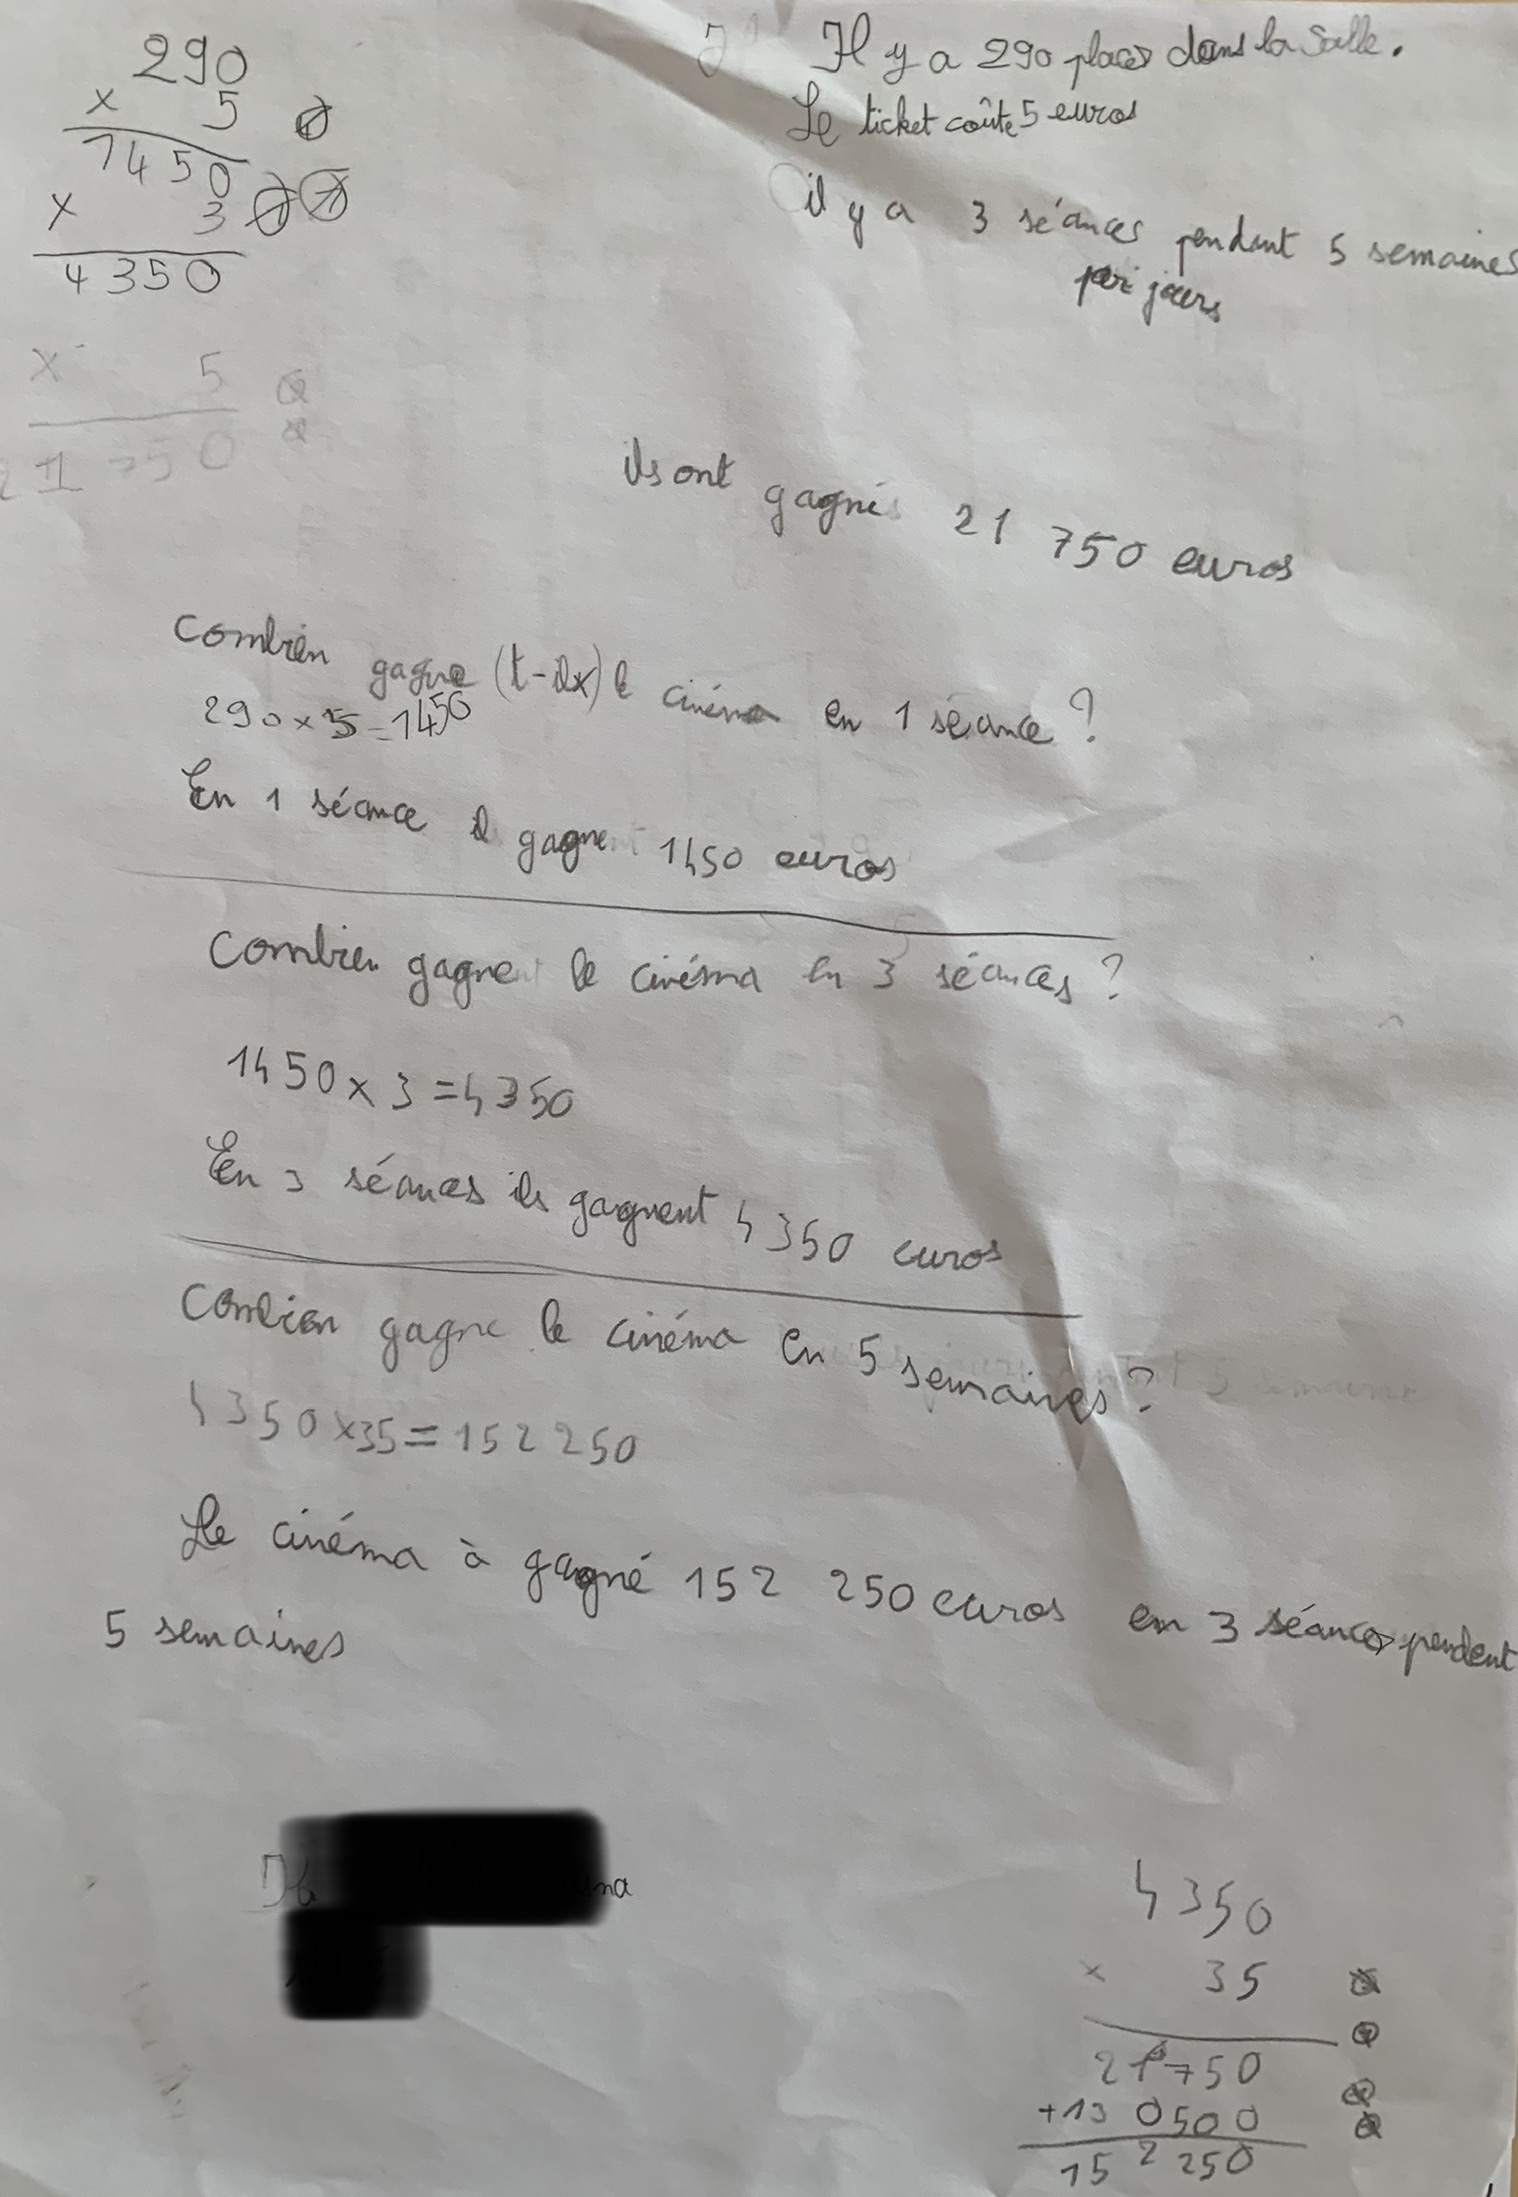 290
x 5
1450
x 3
4350
x 5
21750
Il y a 290 places dans la salle.
Le ticket coûte 5 euros
il y a 3 séances pendant 5 semaines
par jours
ils ont gagné 21 750 euros
Combien gagne (t-il) le cinéma en 1 séance ?
290 x 5 = 1450
En 1 séance il gagne 1450 euros
Combien gagne le cinéma en 3 séances ?
1450 x 3 = 4350
En 3 séances ils gagnent 4 350 euros
Combien gagne le cinéma en 5 semaines ?
4350 x 35 = 152 250
Le cinéma à gagné 152 250 euros en 3 séances pendent
5 semaines
4350
x 35
21750
+130500
152250